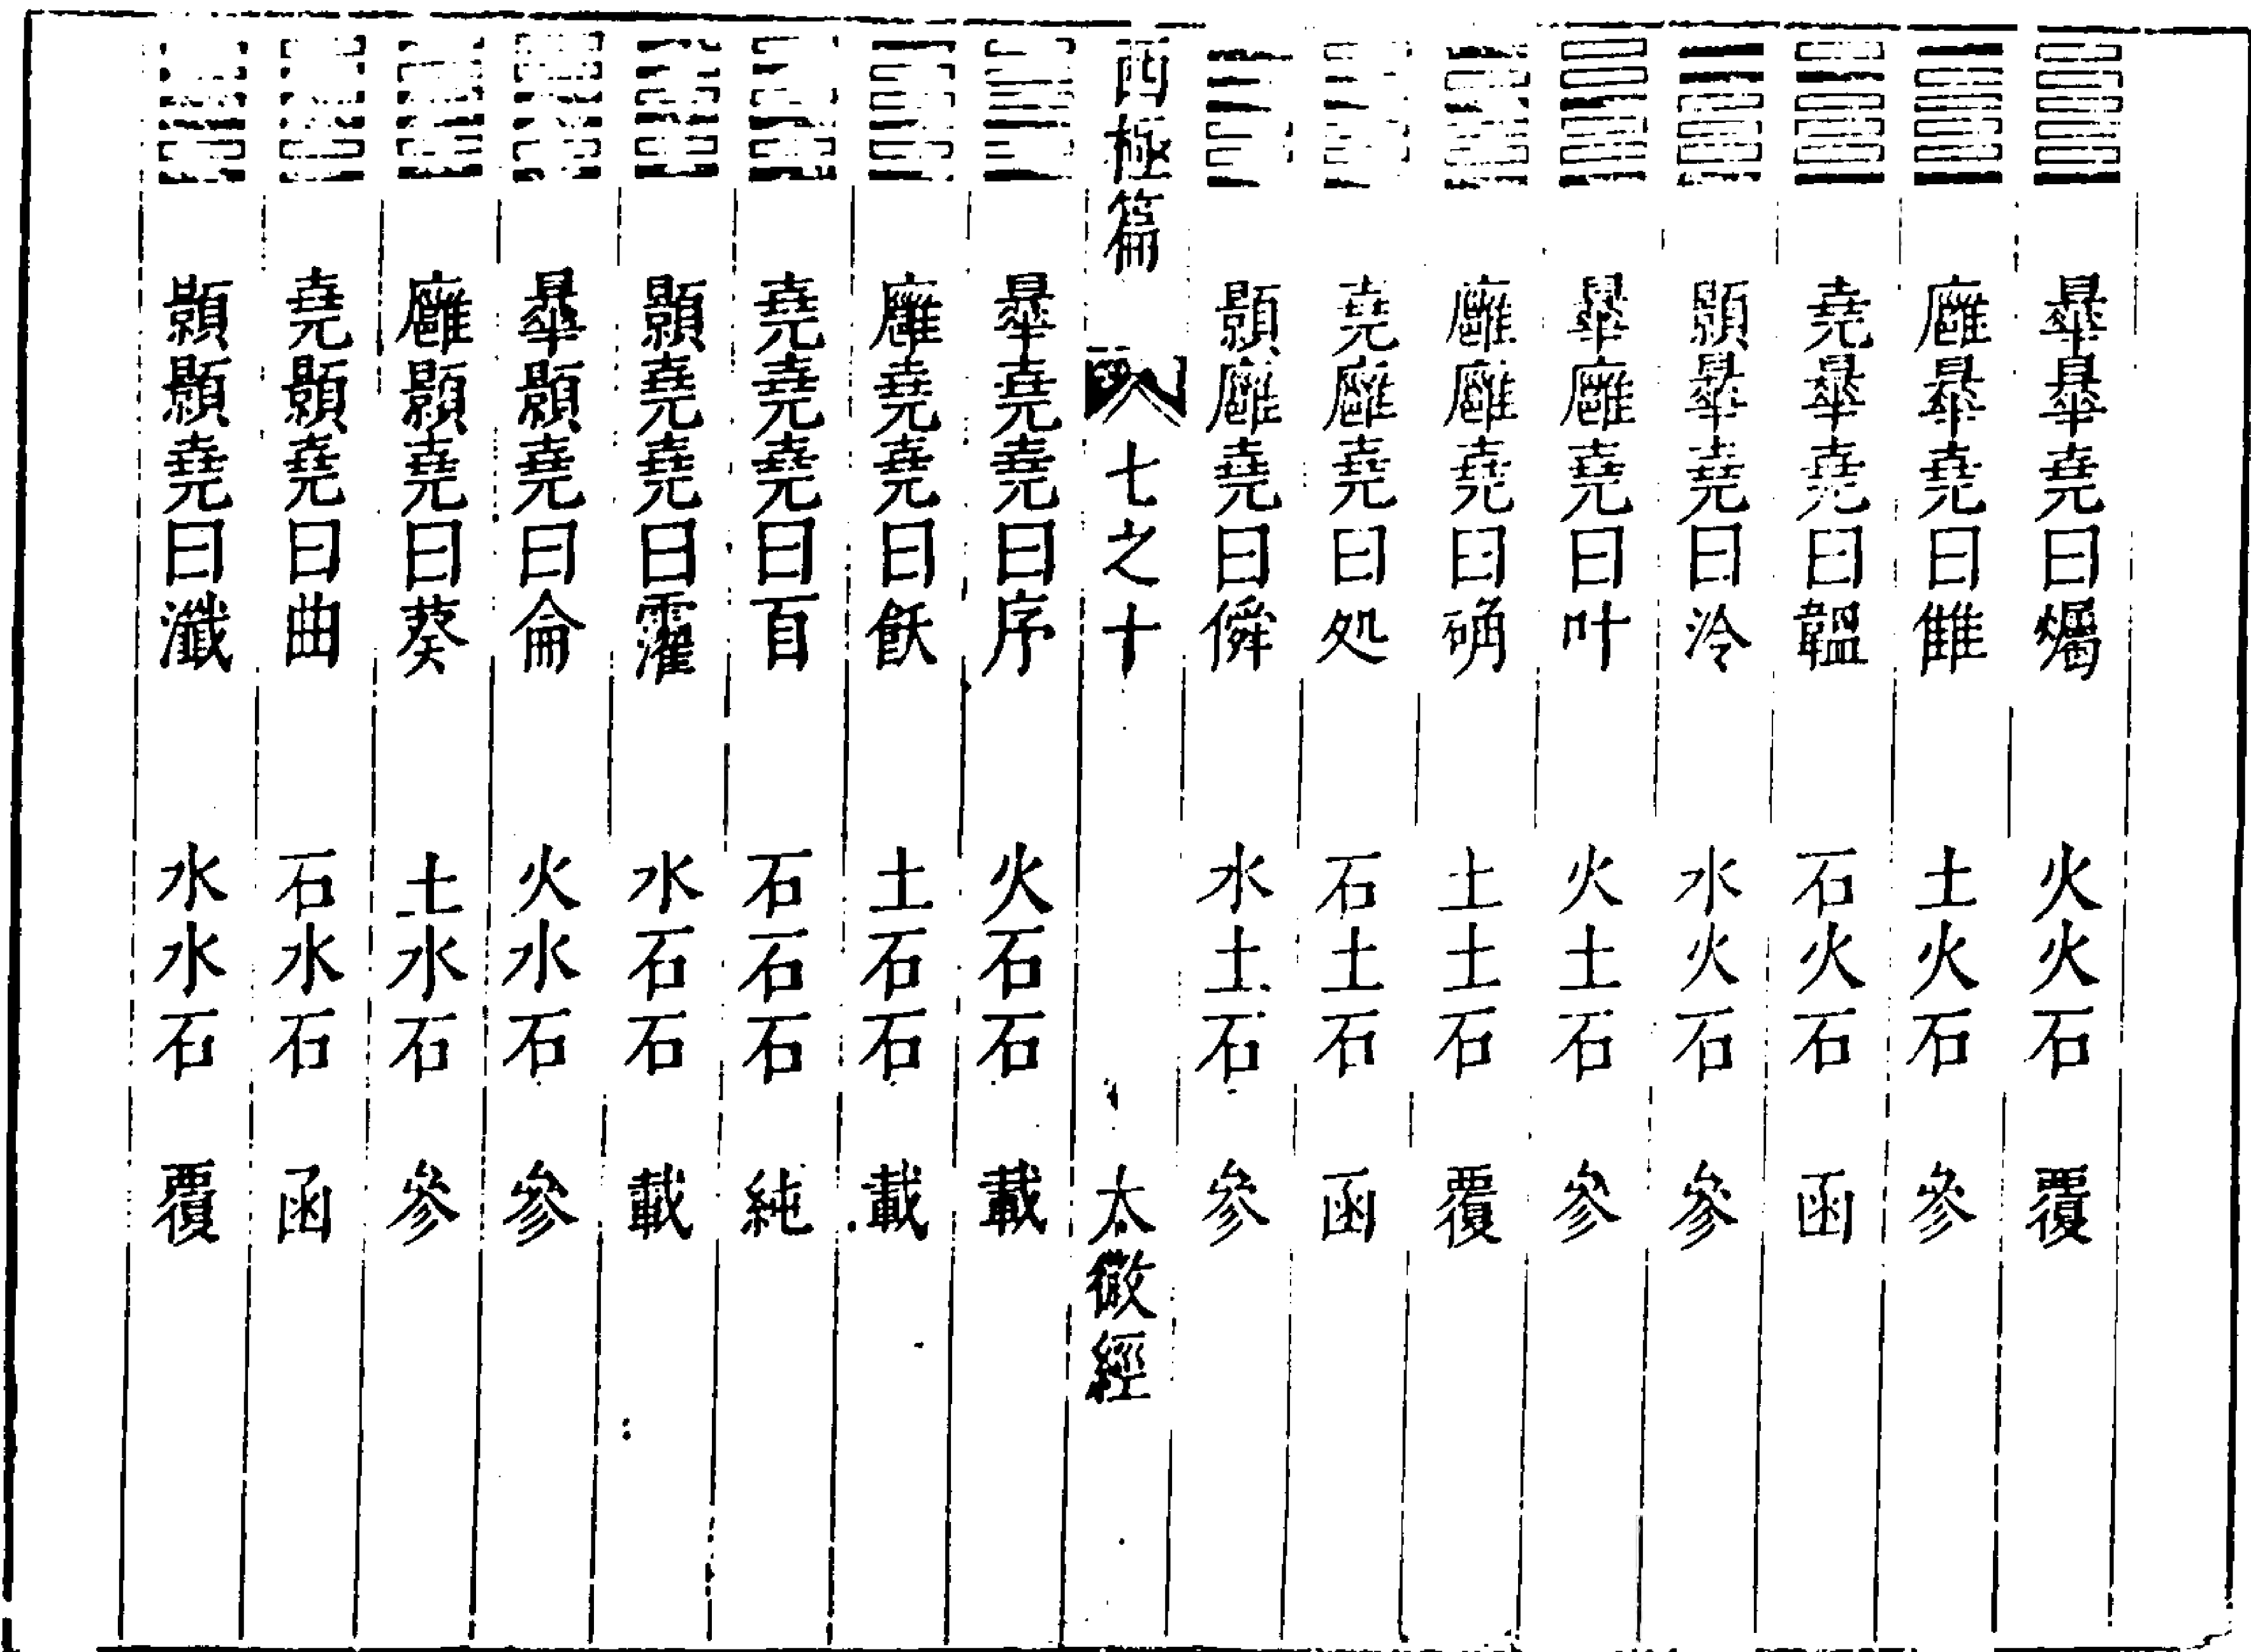 曅曅堯曰爥 火火石 覆
廱曅堯曰雔 土火石 參
堯曅堯曰韞 石火石 函
顥曅堯曰泠 水火石 參
曅廱堯曰叶 火土石 參
廱廱堯曰确 土土石 覆
堯廱堯曰処 石土石 函
顥廱堯曰僢 水土石 參
西極篇 七之十 太微經
曅堯堯曰序 火石石 載
廱堯堯曰飫 土石石 載
堯堯堯曰百 石石石 純
顥堯堯曰 水石石 載
曅顥堯曰侖 火水石 參
廱顥堯曰葵 土水石 參
堯顥堯曰曲 石水石 函
顥顥堯曰瀸 水水石 覆